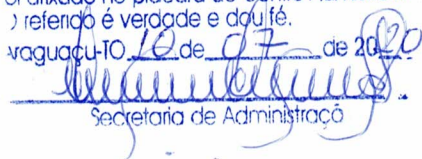 ) referido é verdade e dou fé.
vraguaçu-TO 10 de 07 de 2020
Secretaria de Administraçõ